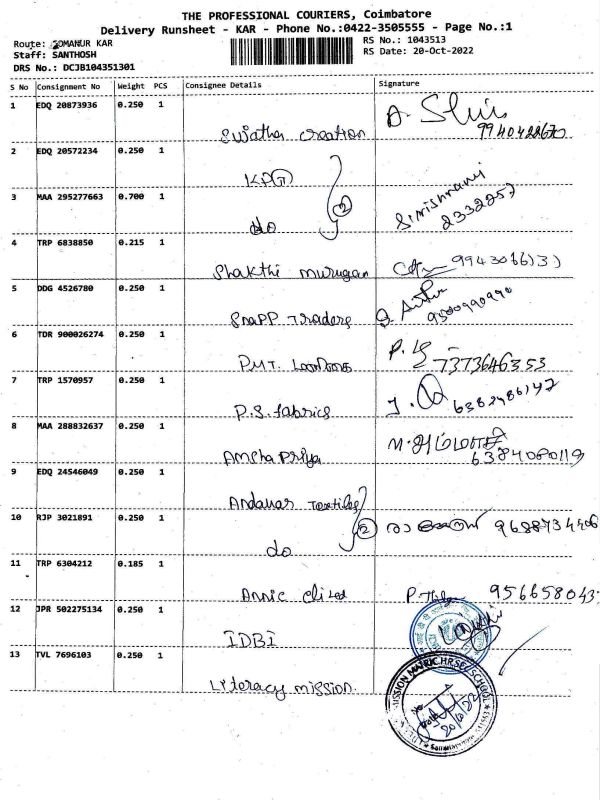 THE PROFESSIONAL COURIERS, Coimbatore
Delivery Runsheet - KAR - Phone No.:0422-3505555 - Page No.:1
Route: SOMANUR KAR
Staff: SANTHOSH
DRS No.: DCJB104351301
RS No.: 1043513
RS Date: 20-Oct-2022
S No Consignment No Weight PCS Consignee Details Signature
1 EDQ 20873936 0.250 1
Swjatha creation 9940428670
2 EDQ 20572234 0.250 1
KPG
3 MAA 295277663 0.700 1
do 2 2332257
4 TRP 6838850 0.215 1
Shakthi murugan
5 DDG 4526780 0.250 1
Snapp Traders 9500990990
6 TDR 900026274 0.250 1
P.M.T. 7373646353
7 TRP 1570957 0.250 1
P.S. fabrics 6382486147
8 MAA 288832637 0.250 1
Amsha Priya 6384080119
9 EDQ 24546049 0.250 1
Andavar Textiles
10 RJP 3021891 0.250 1
do 2 9688734406
11 TRP 6304212 0.185 1
Annie 956658043
12 JPR 502275134 0.250 1
IDBI
13 TVL 7696103 0.250 1
Literacy mission
MISSION MATRIC.HR.SEC.SCHOOL
20/10/22